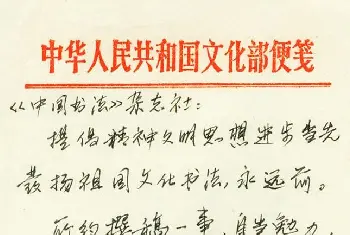 中华人民共和国文化部便笺
《中国书法》杂志社：
提倡精神文明思想进步当先
发扬祖国文化书法，永远前。
所约撰稿一事，自当勉力，